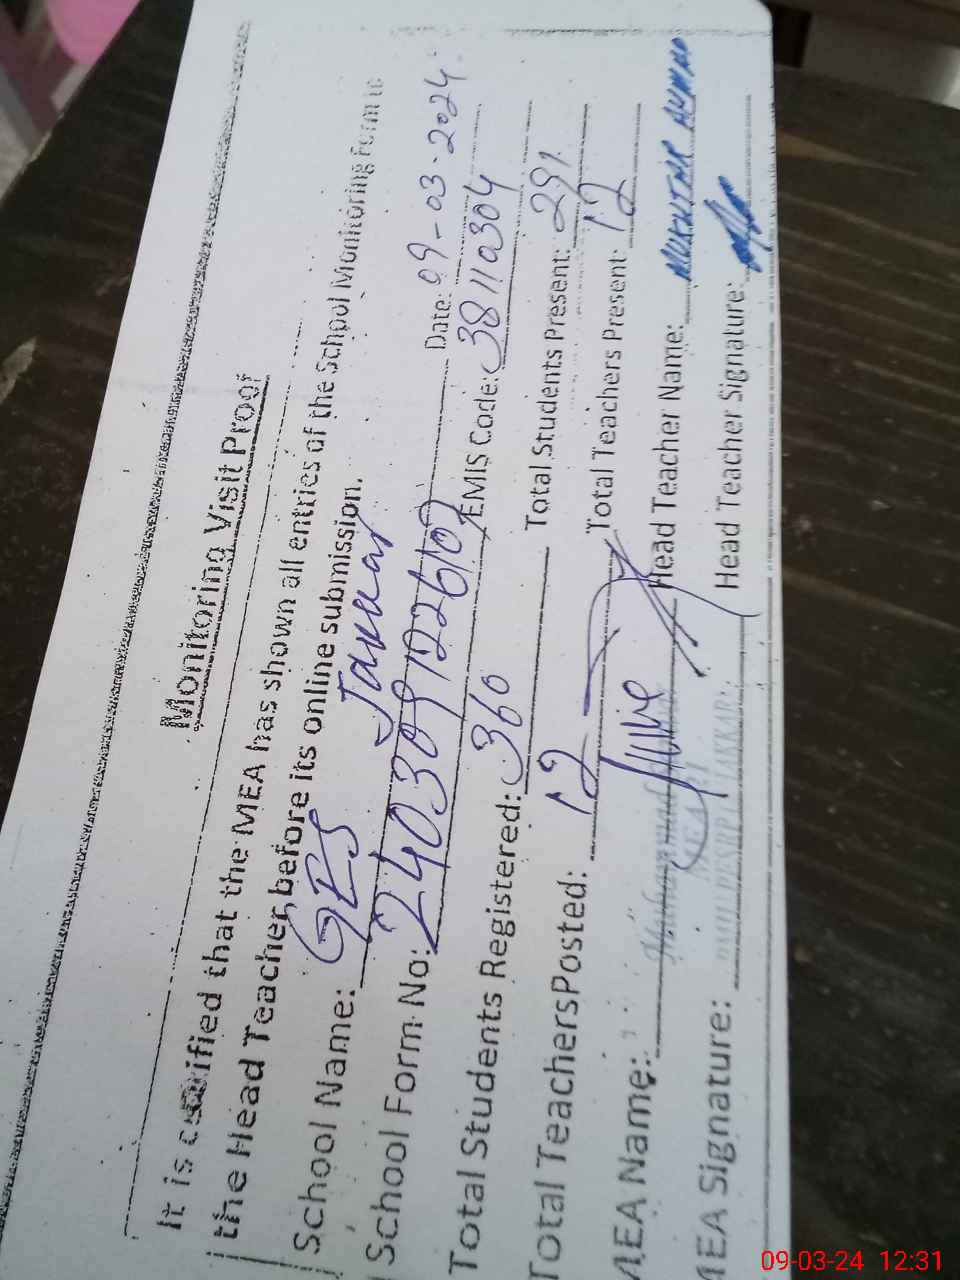 Monitoring Visit Proof
It is certified that the MEA has shown all entries of the School Monitoring Form to
the Head Teacher before its online submission.
School Name: GES
School Form No: Date: 09-03-2024
EMIS Code: 38110304
Total Students Registered: 360 Total Students Present: 291
Total TeachersPosted: 12 Total Teachers Present: 12
MEA Name: Muhammad Head Teacher Name: MUKHTAR AHMAD
MEA Signature: Head Teacher Signature:
09-03-24 12:31